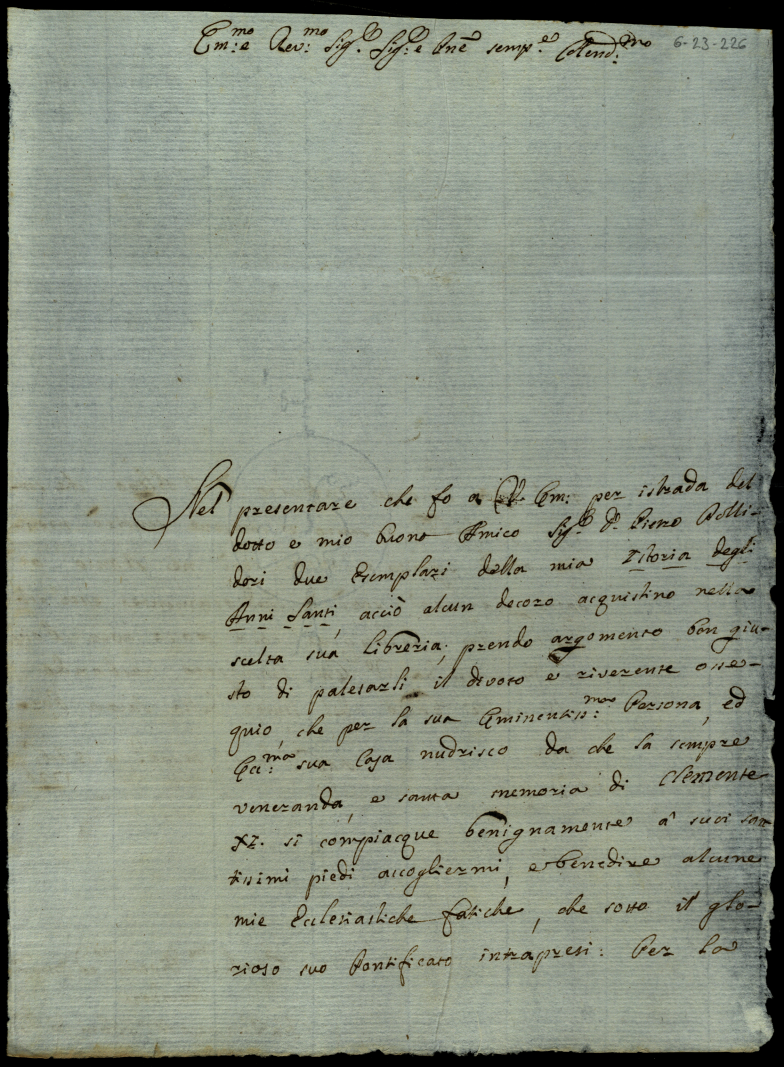 Em:mo e Rev:mo Sig.r Sig:r e Pnẽ semp:e Colend:mo
6-23-226
Nel presentare che fo a V. Em: per istrada del
dotto e mio buono Amico Sig.r D. Pietro Polli-
dori due Esemplari della mia Istoria degli
Anni Santi, acciò alcun decoro acquistino nella
scelta sua libreria; prendo argomento ben giu-
sto di palesarli il divoto e riverente osse-
quio, che per la sua Eminentiss:ma Persona, ed
Ecc:ma sua Casa nudrisco da che la sempre
veneranda, e santa memoria di Clemente
XI. si compiacque benignamente a' suoi san
tissimi piedi accogliermi, e benedire alcune
mie Ecclesiastiche fatiche, che sotto il glo-
rioso suo Pontificato intrapresi: Per la